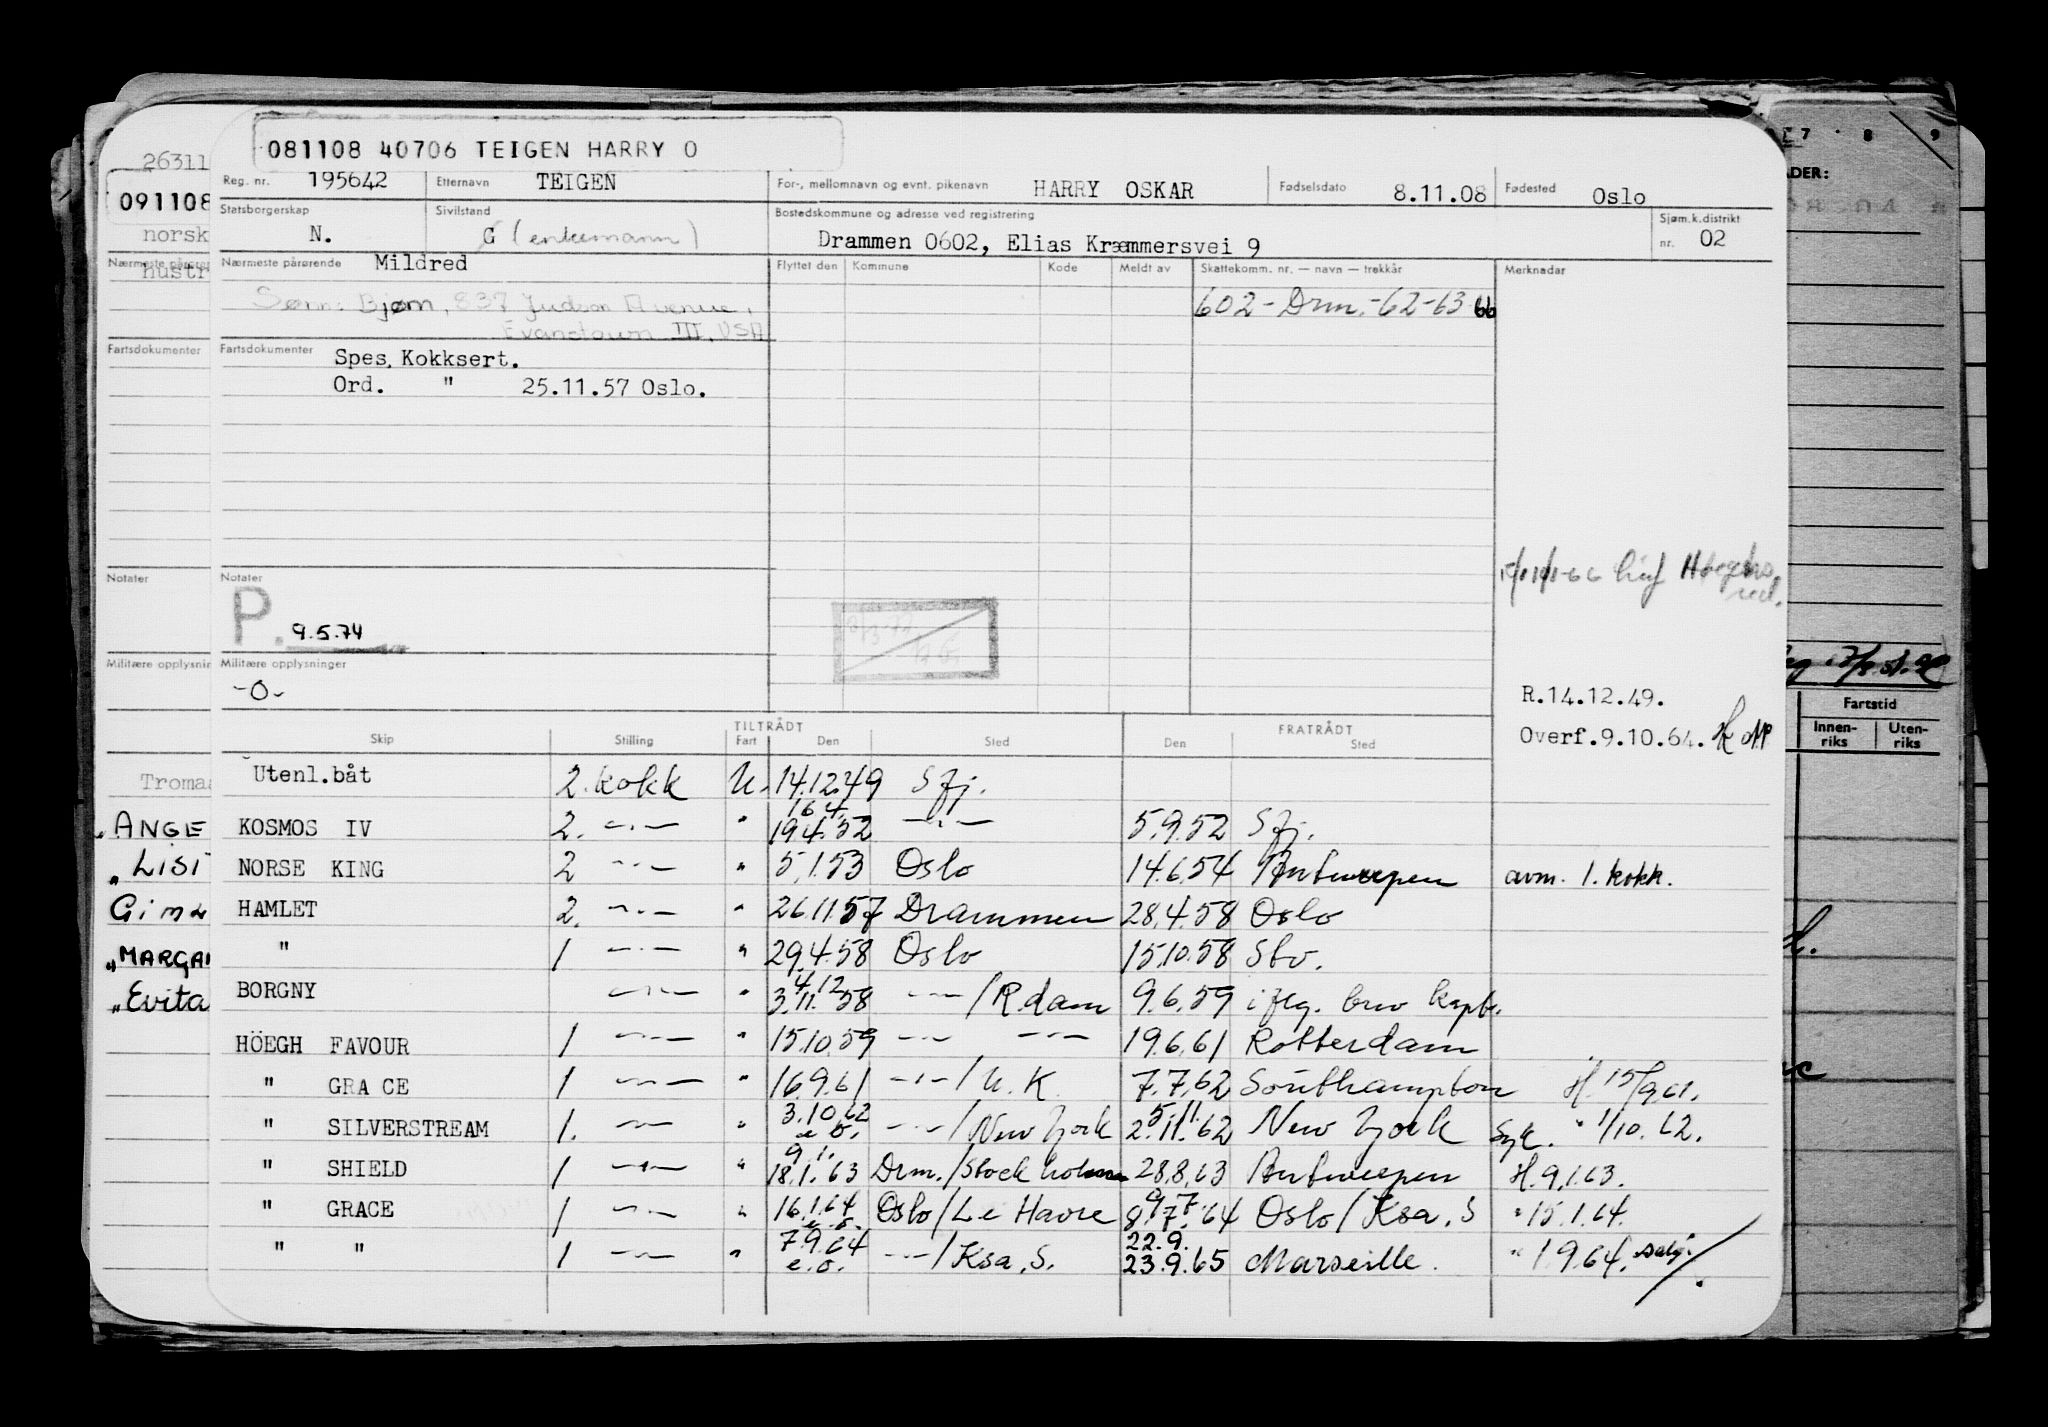 081108 40706 TEIGEN HARRY O
26311
091108
norsk
hustr
Reg. nr. 195642 Etternavn TEIGEN For-, mellomnavn og evnt. pikenavn HARRY OSKAR Fødselsdato 8.11.08 Fødested Oslo
Statsborgerskap N. Sivilstand G (enkemann) Bostedskommune og adresse ved registrering Drammen 0602, Elias Kræmmersvei 9 Sjøm.k.distrikt nr. 02
Nærmeste pårørende Mildred Flyttet den Kommune Kode Meldt av Skattekomm. nr. — navn — trekkår Merknader
Sønn: Bjørn, 837 Judson Avenue,
Evanstown III, USA
602 - Drm. - 62-63 66
Fartsdokumenter Fartsdokumenter Spes. Kokksert.
Ord. " 25.11.57 Oslo.
Notater Notater
P. 9.5.74
Militære opplysnin Militære opplysninger
-0-
R.14.12.49.
Overf.9.10.64.
TILTRÅDT FRATRÅDT
Skip Stilling Fart Den Sted Den Sted
Utenl.båt 2. kokk U. 14.12.49 Sfj.
KOSMOS IV 2. —·— " 16.4. 19.4.52 —·— 5.9.52 Sfj.
NORSE KING 2 —·— " 5.1.53 Oslo 14.6.54 Antwerpen avm. 1. kokk.
HAMLET 2. —·— " 26.11.57 Drammen 28.4.58 Oslo
" 1 —·— " 29.4.58 Oslo 15.10.58 Stv.
BORGNY —·— " 4.12 3.11.58 —·—/R.dam 9.6.59 iflg. brev kapt.
HÖEGH FAVOUR 1 —·— " 15.10.59 —·— —·— 19.6.61 Rotterdam
" GRACE 1 —·— " 16.9.61 —·—/U.K. 7.7.62 Southampton H. 15/9.61.
" SILVERSTREAM 1. —·— " 3.10.62 e.o. —·—/New York 5.11. 2.11.62 New York Syk. " 1/10.62.
" SHIELD 1 —·— " 9.1. 18.1.63 Drm./Stockholm 28.8.63 Antwerpen H. 9.1.63.
" GRACE 1 —·— " 16.1.64 e.o. Oslo/Le Havre 9.7. 8.7.64 Oslo/Ksa.S " 15.1.64.
" " 1 —·— " 7.9.64 e.o. —·—/Ksa.S. 22.9. 23.9.65 Marseille. " 1.9.64. salg.
Tromsø
"ANGE
"LISI
"MARGA
"Evita
7 · 8 9
ADER:
Fartstid
Innen-riks Uten-riks